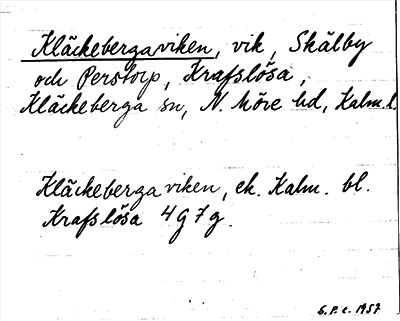 Kläckebergaviken, vik, Skälby
och Perstorp, Krafslösa,
Kläckeberga sn, N. Möre hd, Kalm. l.
Kläckebergaviken, ek. Kalm. bl.
Krafslösa 4 g 7 g.
S.P.c. 1957